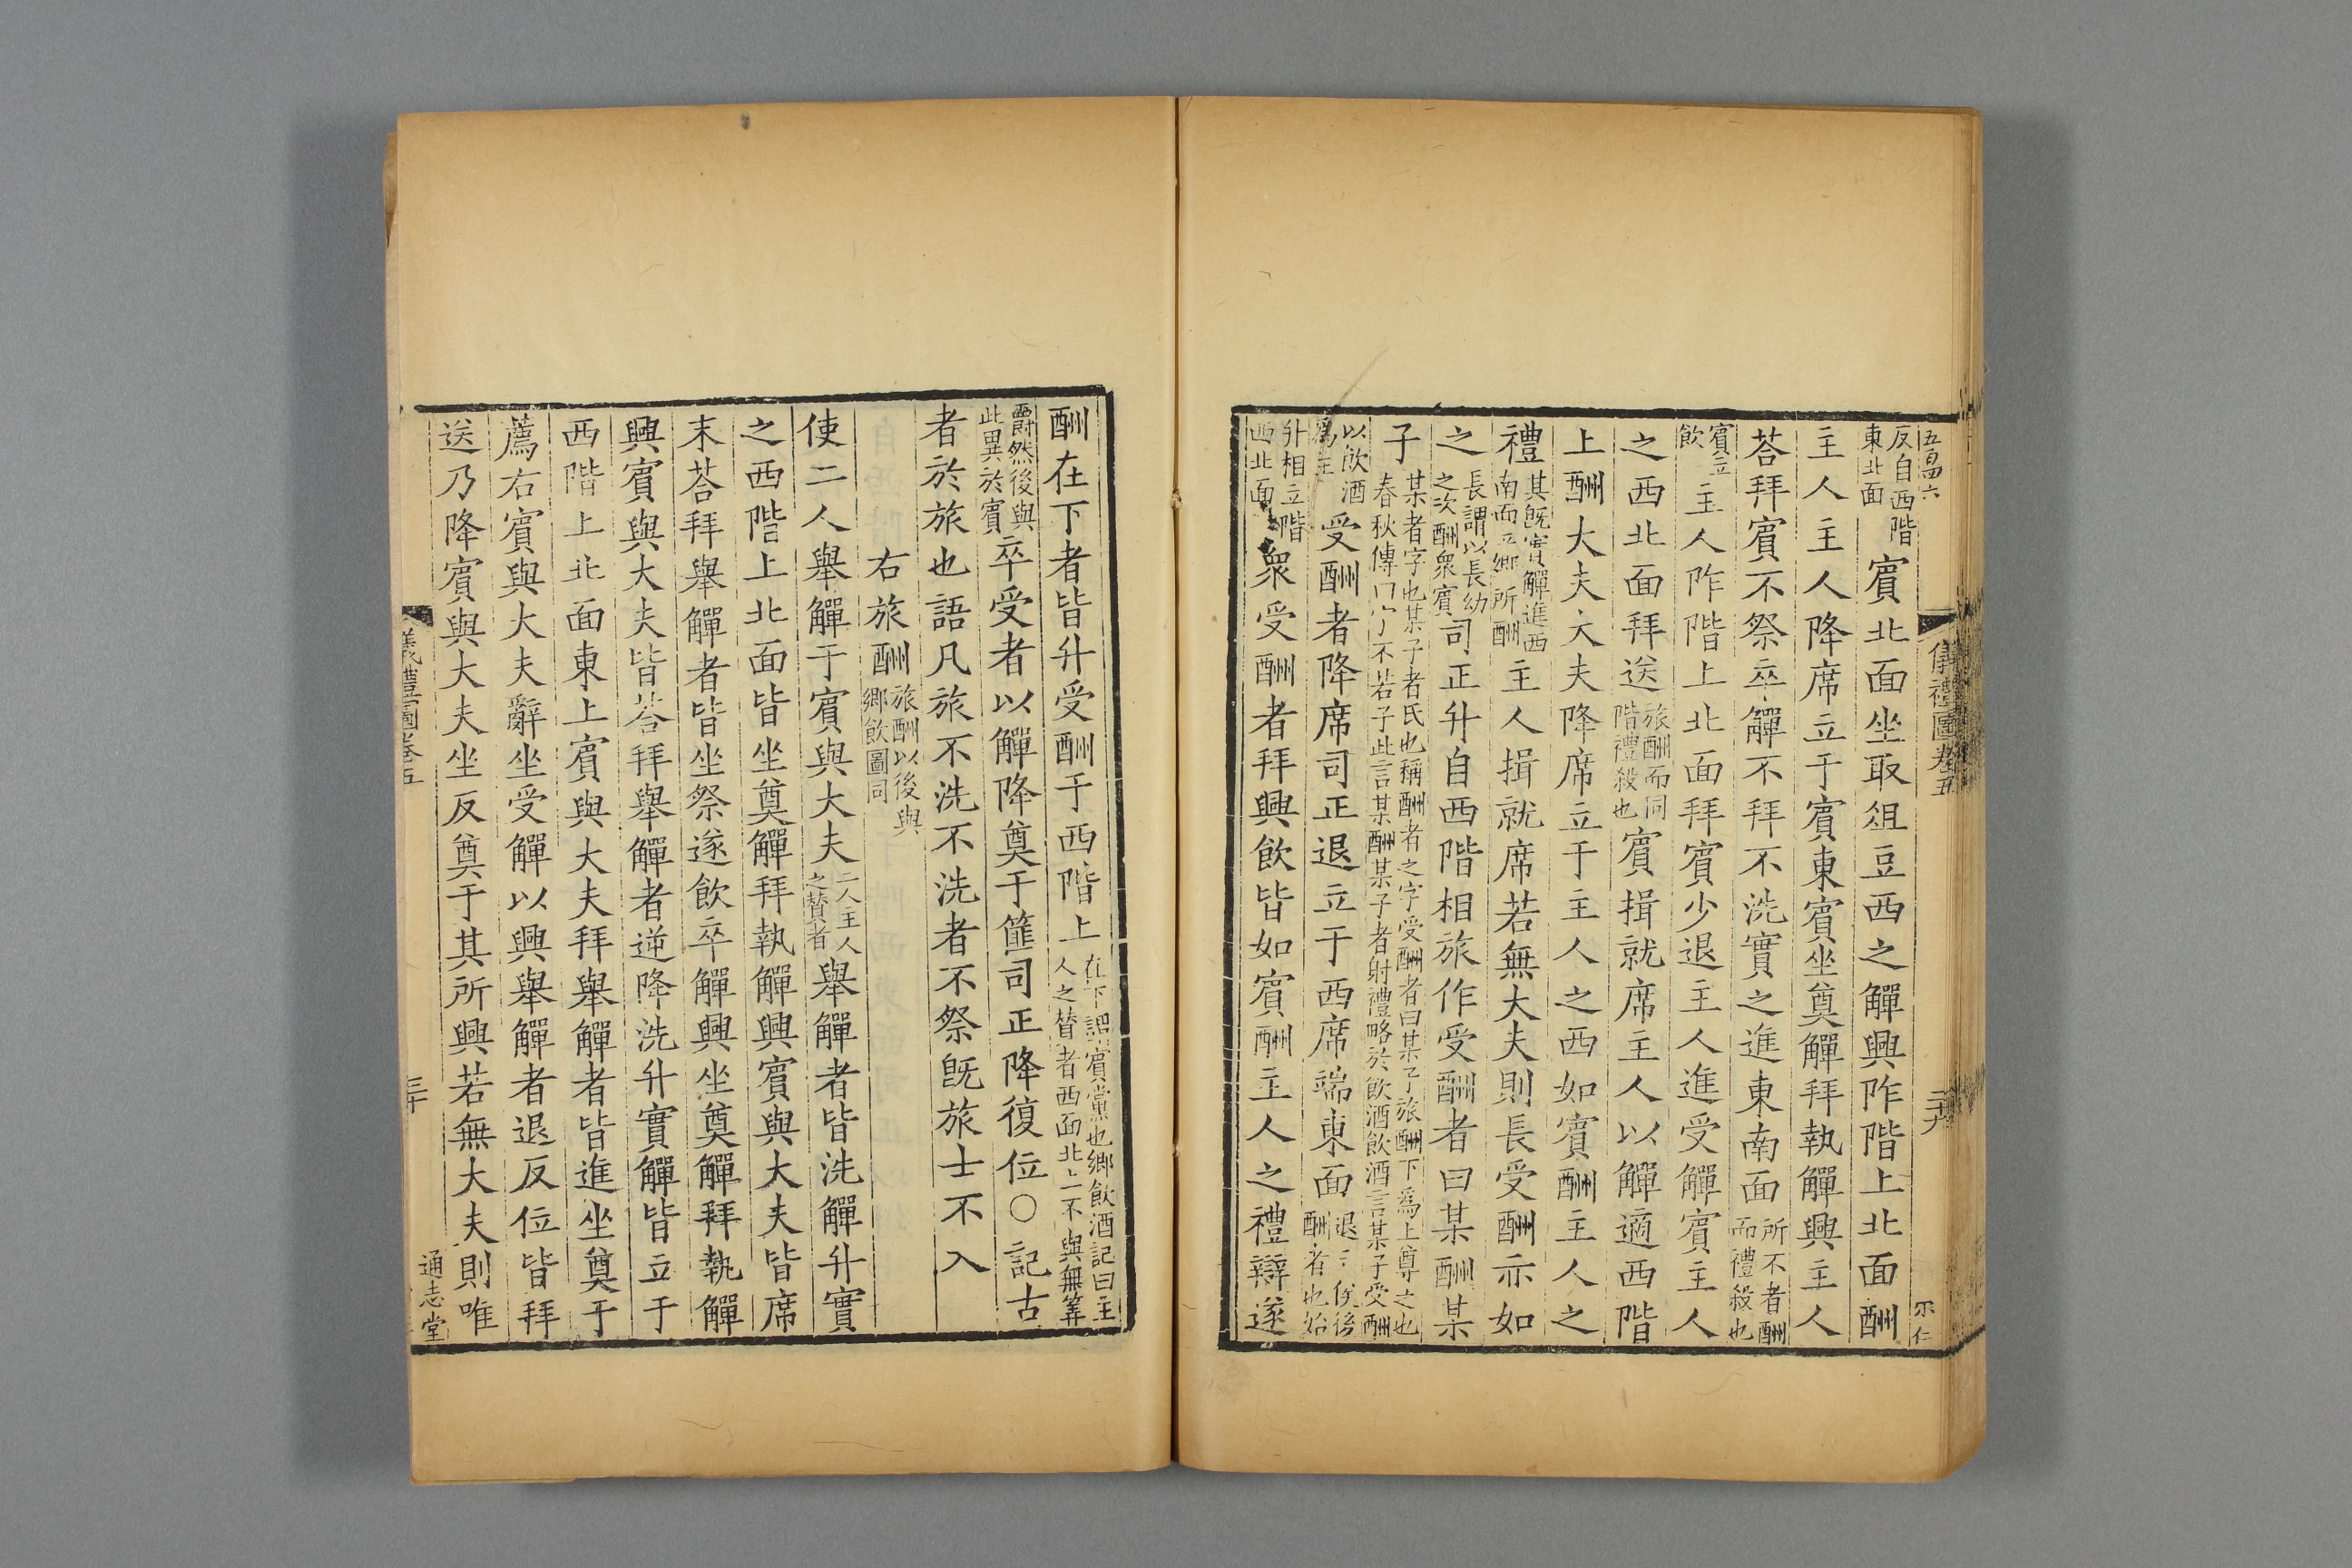 五百四六 儀禮圖卷五 二十九
反自西階東北面賓北面坐取俎豆西之觶興阼階上北面酬
主人主人降席立于賓東賓坐奠觶拜執觶興主人
荅拜賓不祭卒觶不拜不洗實之進東南面所不者酬而禮殺也
賓立飲主人阼階上北面拜賓少退主人進受觶賓主人
之西北面拜送旅酬而同階禮殺也賓揖就席主人以觶適西階
上酬大夫大夫降席立于主人之西如賓酬主人之
禮其既實觶進西南面立鄉所酬主人揖就席若無大夫則長受酬亦如
之長謂以長幼之次酬衆賓司正升自西階相旅作受酬者曰某酬某
子某者字也某子者氏也稱酬者之字受酬者曰某子旅酬下爲上尊之也春秋傳曰字不若子此言某酬某子者射禮略於飲酒飲酒言某子受酬
以飲酒爲主受酬者降席司正退立于西席端東面退立俟後酬者也始
升相立階西北面衆受酬者拜興飲皆如賓酬主人之禮辯遂
酬在下者皆升受酬于西階上在下謂賓黨也鄉飲酒記曰主人之贊者西面北上不與無筭
爵然後與此異於賓卒受者以觶降奠于篚司正降復位○記古
者於旅也語凡旅不洗不洗者不祭旣旅士不入
右旅酬旅酬以後與鄉飲圖同
使二人舉觶于賓與大夫二人主人之贊者舉觶者皆洗觶升實
之西階上北面皆坐奠觶拜執觶興賓與大夫皆席
末荅拜舉觶者皆坐祭遂飲卒觶興坐奠觶拜執觶
興賓與大夫皆荅拜舉觶者逆降洗升實觶皆立于
西階上北面東上賓與大夫拜舉觶者皆進坐奠于
薦右賓與大夫辭坐受觶以興舉觶者退反位皆拜
送乃降賓與大夫坐反奠于其所興若無大夫則唯
儀禮圖卷五 三十 通志堂